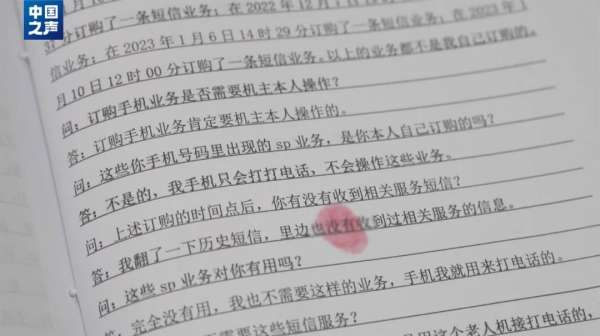 中国之声
月10日
31分订购了一条短信业务；在2022年12月1日
信业务；在2023年1月6日14时29分订购了一条短信业务；在2023年1
月10日12时00分订购了一条短信业务。以上的业务都不是我自己订购的。
问：订购手机业务是否需要机主本人操作？
答：订购手机业务肯定要机主本人操作的。
问：这些你手机号码里出现的sp业务，是你本人自己订购的吗？
答：不是的，我手机只会打打电话，不会操作这些业务。
问：上述订购的时间点后，你有没有收到相关服务短信？
答：我翻了一下历史短信，里边也没有收到过相关服务的信息。
问：这些sp业务对你有用吗？
答：完全没有用，我也不需要这样的业务，手机我就用来打电话的。
要这些短信服务？
用这个老人机接打电话的，